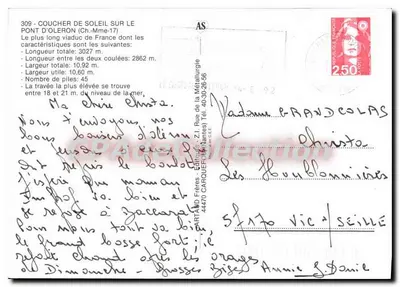 309 - COUCHER DE SOLEIL SUR LE
PONT D'OLERON (Ch.-Mme-17)
Le plus long viaduc de France dont les
caractéristiques sont les suivantes:
- Longueur totale: 3027 m.
- Longueur entre les deux culées: 2862 m.
- Largeur totale: 10,92 m.
- Largeur utile: 10,60 m.
- Nombre de piles: 45
- La travée la plus élevée se trouve
entre 18 et 21 m. du niveau de la mer.
AS
2,50
ARTAUD Frères - Editeurs - Z.I. Rue de la Métallurgie
44470 CARQUEFOU (Nantes) Tél. 40-30-26-56
Ma chère Christa
Nous t'envoyons nos
bons baisers d'oléron
et
ont repris le boulot
J'espère que maman
va bien et
se repose à Baccarat
Pour nous tout va bien,
le grand bosse fort, je
refait chaud après les orages
de Dimanche - Grosses Bises Annie G. Daniel
Madame GRANDCOLAS
Christa
Les Houblonnières
57170 VIC S/SEILLE